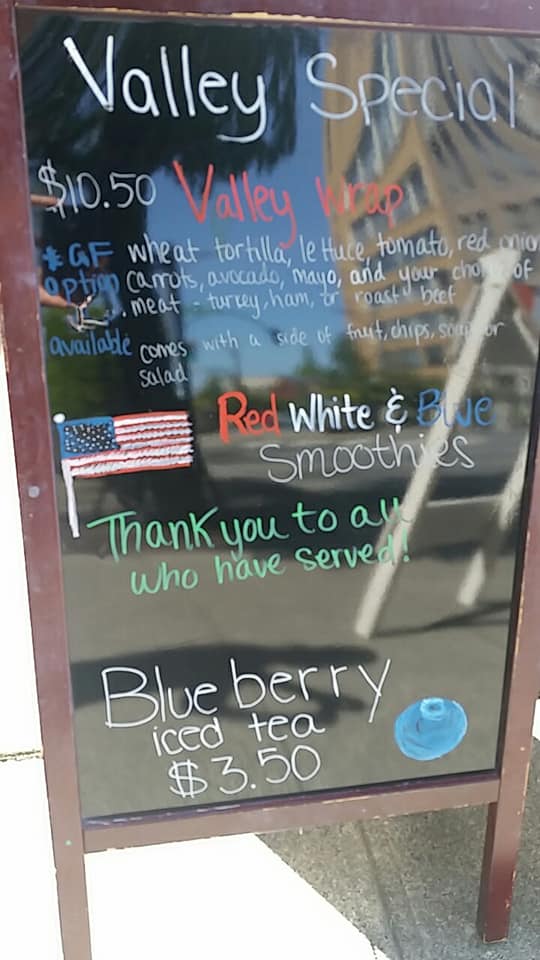 Valley Special
$10.50 Valley Wrap
*GF wheat tortilla, lettuce, tomato, red onion
option carrots, avocado, mayo, and your choice of
meat - turkey, ham, or roast beef
available comes with a side of fruit, chips, soup or
salad
Red White & Blue
Smoothies
Thank you to all
who have served!
Blueberry
iced tea
$3.50